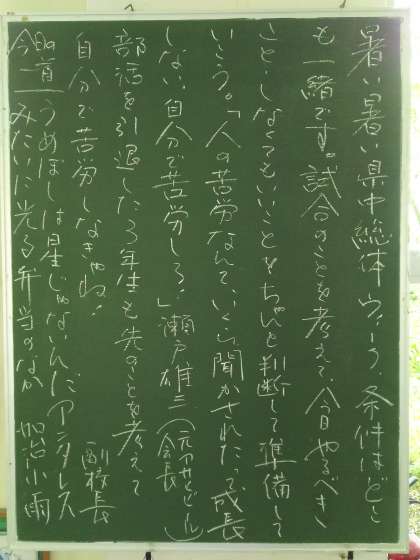 暑い暑い県中総体ウィーク、条件はどこ
も一緒です。試合のことを考えて、今日やるべき
こと・しなくてもいいことをちゃんと判断して準備して
いこう。「人の苦労なんて、いくら聞かされたって成長
しない。自分で苦労しろ！」瀬戸雄三(元アサヒビール会長)
部活を引退した3年生も先のことを考えて
自分で苦労しなきゃね！ 副校長
今日の一首
うめぼしは星じゃないんだアンタレス
みたいに光る弁当のなか 加治小雨